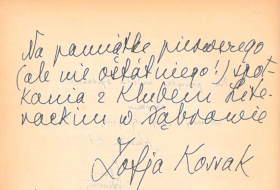 Na pamiątkę pierwszego
(ale nie ostatniego!) spot-
kania z Klubem Lite-
rackim w Dąbrowie
Zofja Kossak